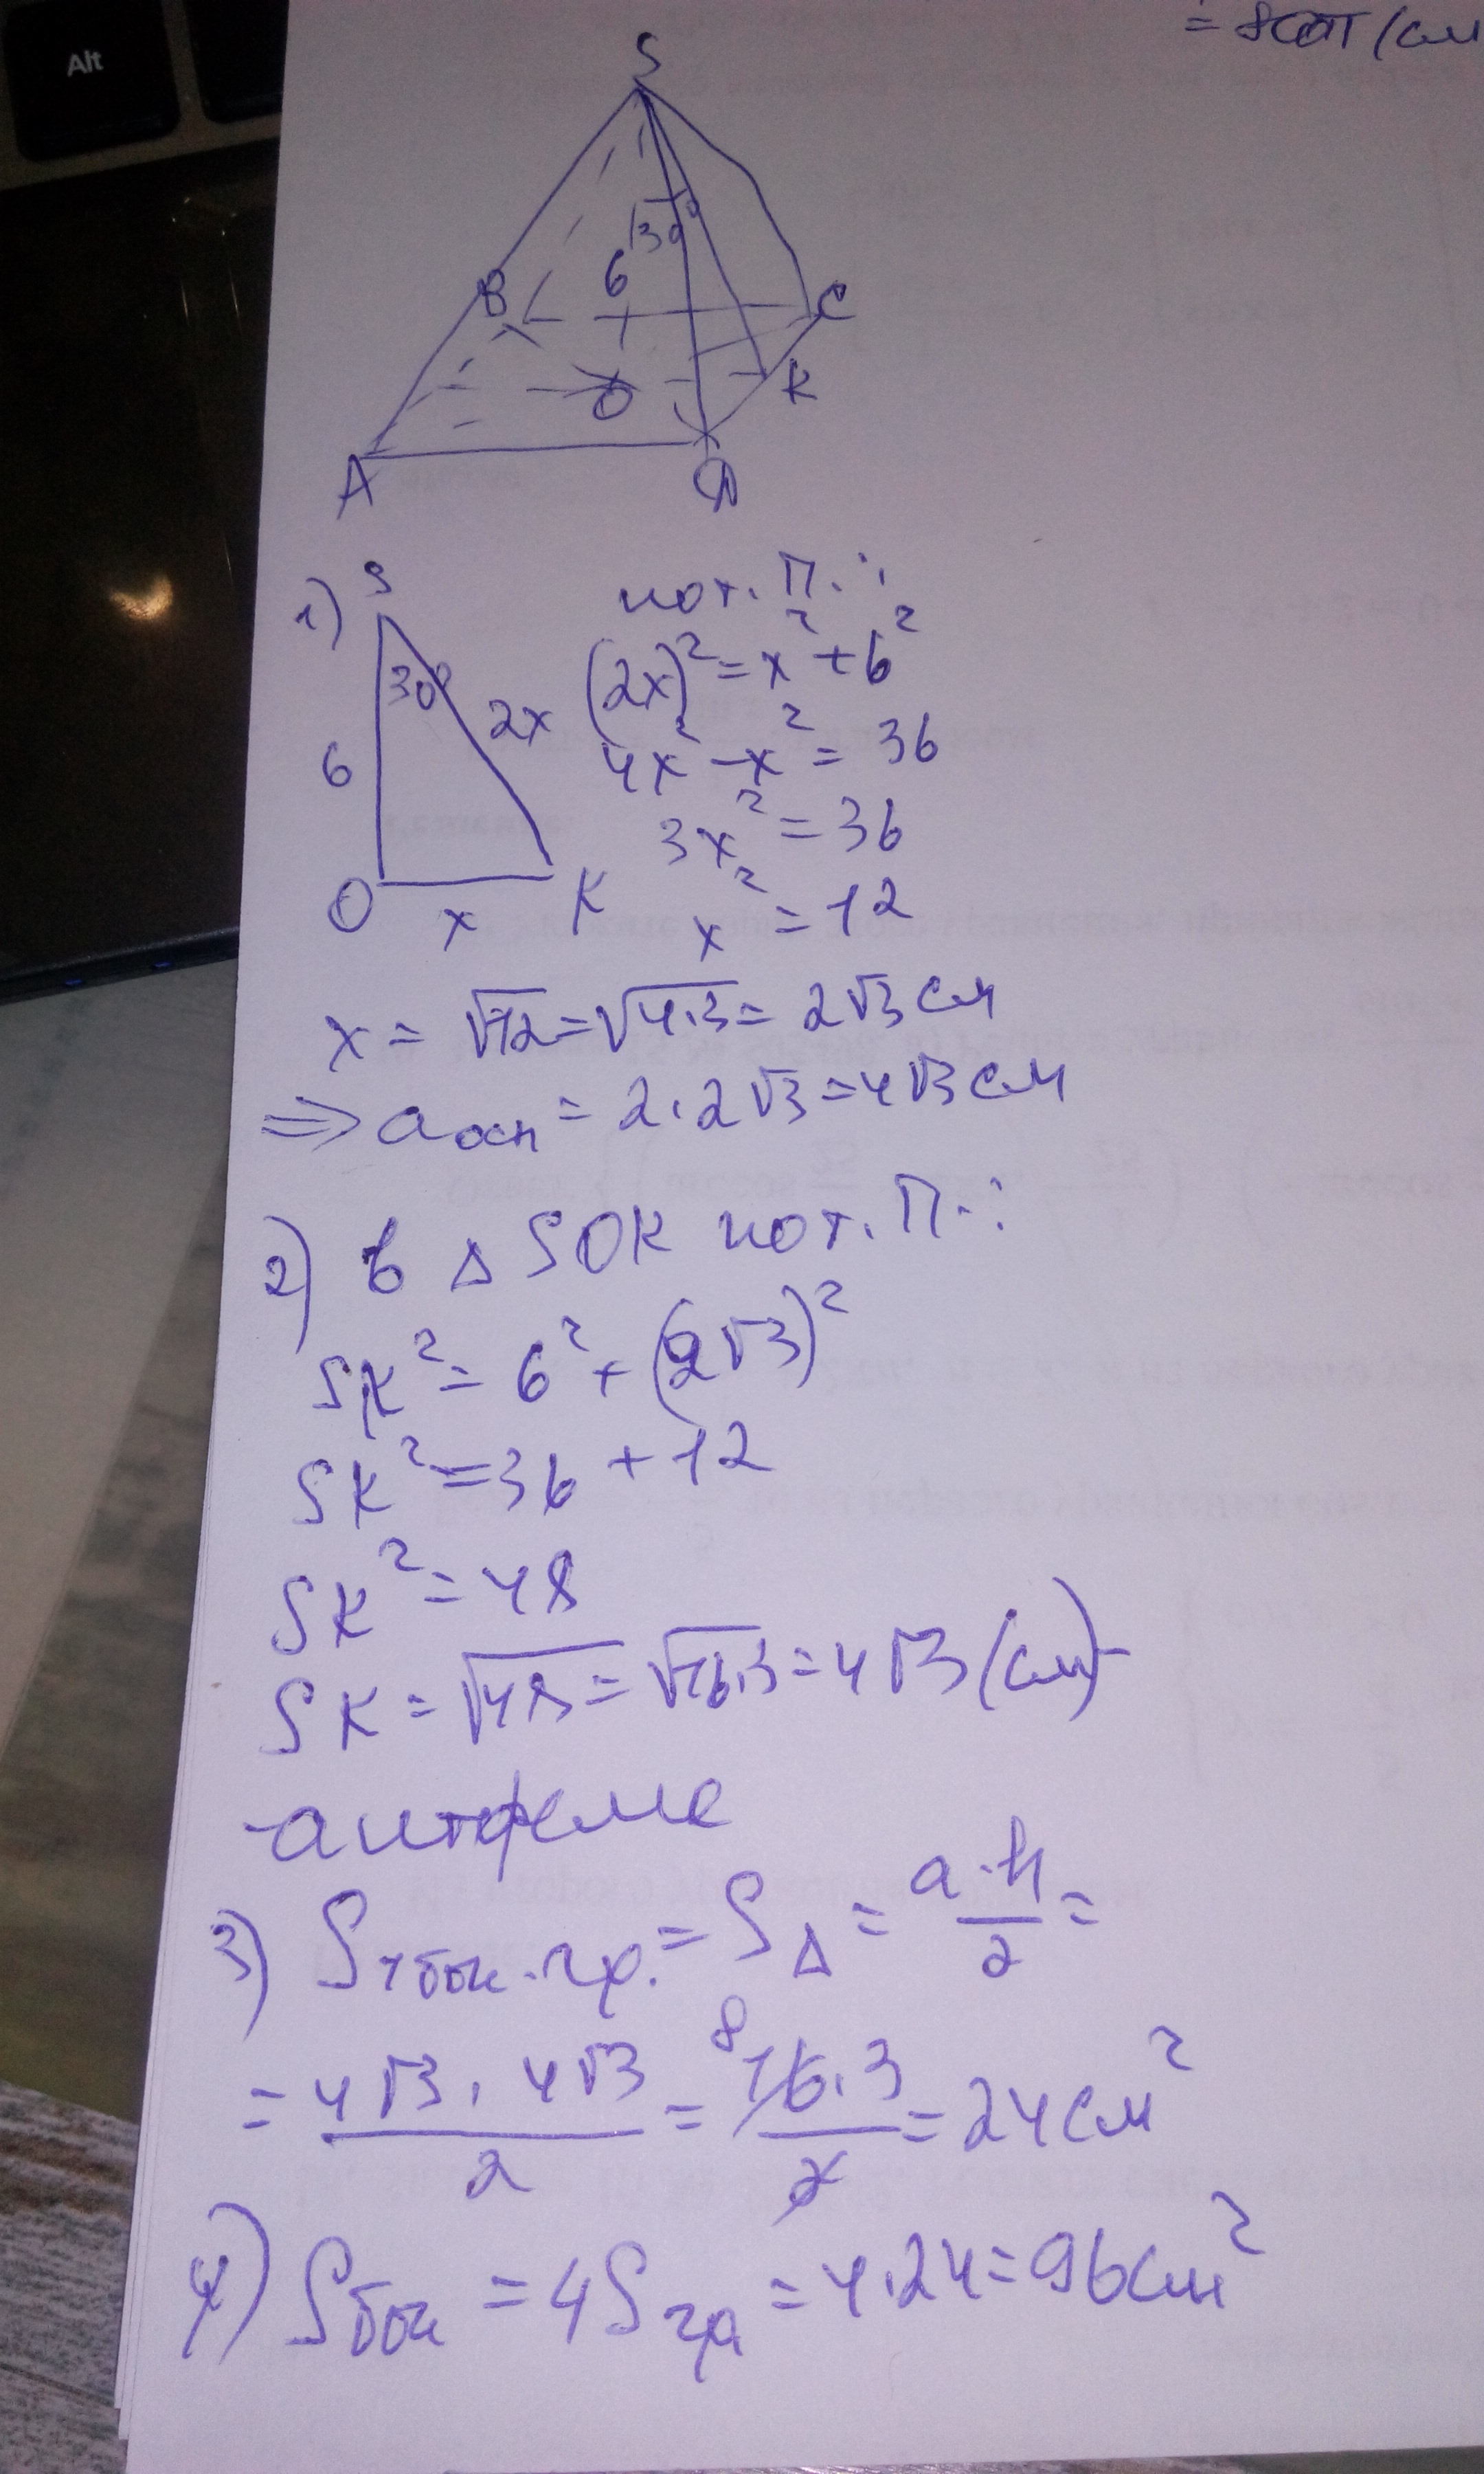 Alt
S
30°
6
B
C
O
K
A
D
1) S
30°
6
2x
O
x
K
по т. П.:
(2x)² = x² + 6²
4x² - x² = 36
3x² = 36
x² = 12
x = √12 = √4·3 = 2√3 см
=> a осн = 2·2√3 = 4√3 см
2) в Δ SOK по т. П.:
SK² = 6² + (2√3)²
SK² = 36 + 12
SK² = 48
SK = √48 = √16·3 = 4√3 (см) -
- апофема
3) S 1 бок. гр. = S Δ = a·h/2 =
= 4√3 · 4√3 / 2 = 8 16·3 / 2 = 24 см²
4) S бок = 4S гр = 4·24 = 96 см²